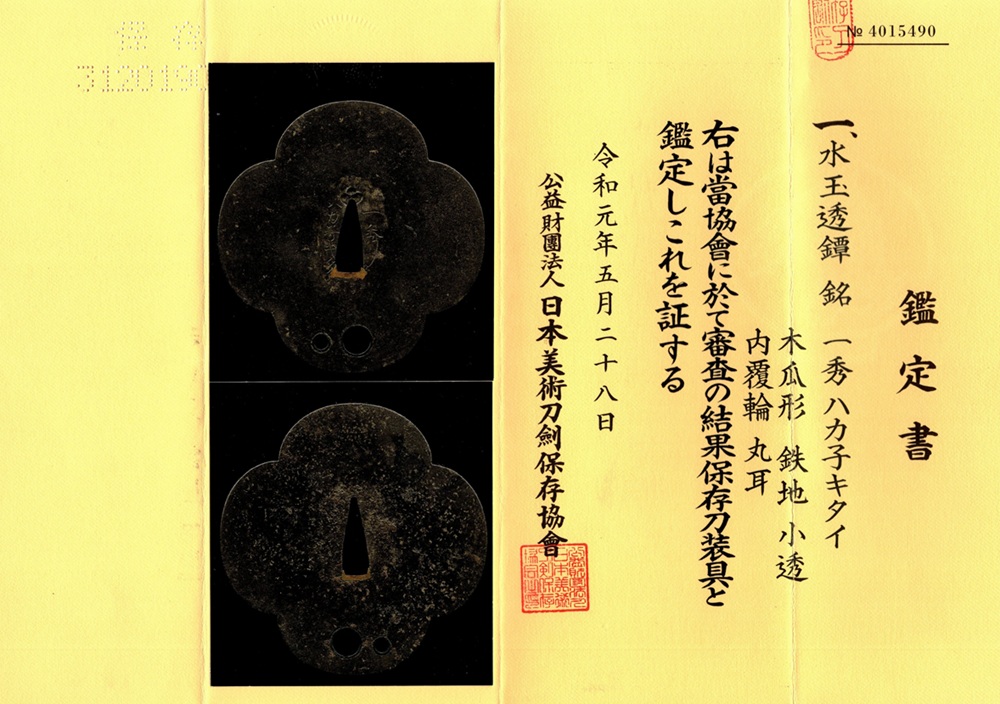 № 4015490
鑑定書
一、水玉透鐔 銘 一秀ハカ子キタイ
木瓜形 鉄地 小透
内覆輪 丸耳
右は當協會に於て審査の結果保存刀装具と
鑑定しこれを証する
令和元年五月二十八日
公益財團法人 日本美術刀劍保存協會
保存
3120190